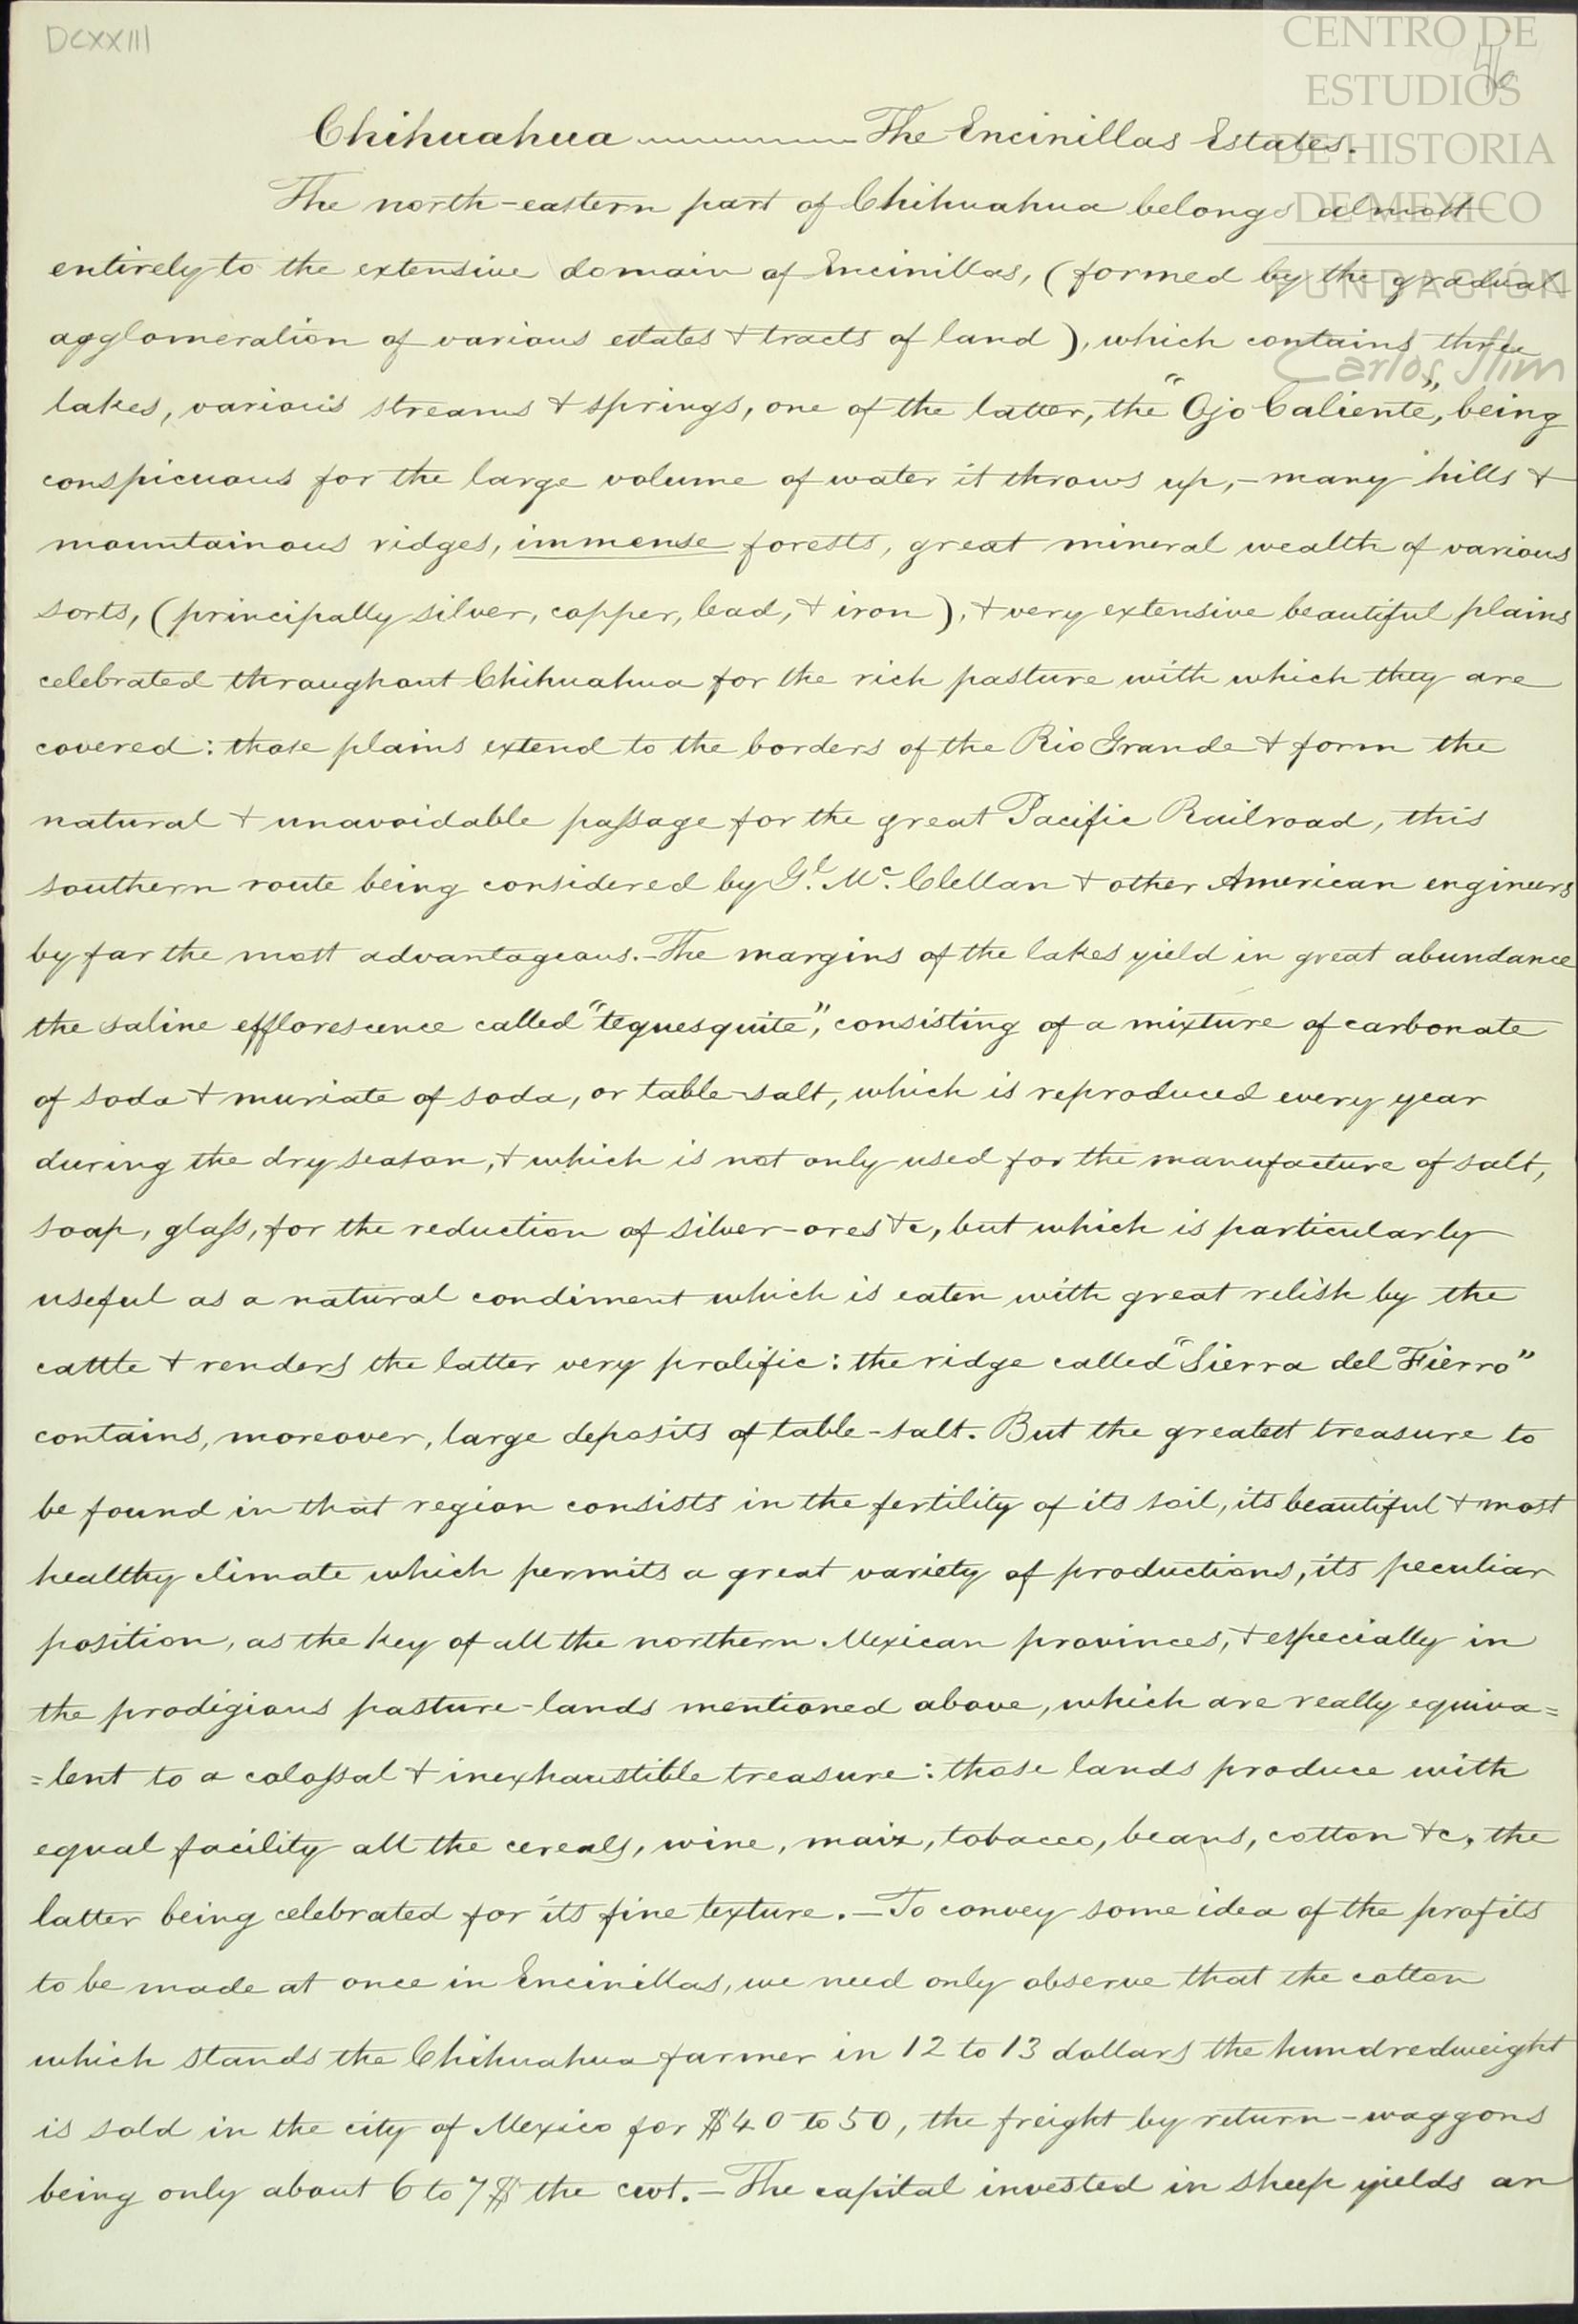 DCXXIII
CENTRO DE
ESTUDIOS
DE HISTORIA
DE MEXICO
FUNDACIÓN
Carlos Slim
Chihuahua The Encinillas Estates.
The north-eastern part of Chihuahua belongs almost
entirely to the extensive domain of Encinillas, (formed by the gradual
agglomeration of various estates & tracts of land), which contains three
lakes, various streams & springs, one of the latter, the "Ojo Caliente", being
conspicuous for the large volume of water it throws up, - many hills &
mountainous ridges, immense forests, great mineral wealth of various
sorts, (principally silver, copper, lead, & iron), & very extensive beautiful plains
celebrated throughout Chihuahua for the rich pasture with which they are
covered: those plains extend to the borders of the Rio Grande & form the
natural & unavoidable passage for the great Pacific Railroad, this
southern route being considered by Gl. Mc. Clellan & other American engineers
by far the most advantageous. - The margins of the lakes yield in great abundance
the saline efflorescence called "tequesquite", consisting of a mixture of carbonate
of soda & muriate of soda, or table-salt, which is reproduced every year
during the dry season, & which is not only used for the manufacture of salt,
soap, glass, for the reduction of silver-ores &c, but which is particularly
useful as a natural condiment which is eaten with great relish by the
cattle & renders the latter very prolific: the ridge called "Sierra del Fierro"
contains, moreover, large deposits of table-salt. But the greatest treasure to
be found in that region consists in the fertility of its soil, its beautiful & most
healthy climate which permits a great variety of productions, its peculiar
position, as the key of all the northern Mexican provinces, & especially in
the prodigious pasture-lands mentioned above, which are really equiva=
=lent to a colossal & inexhaustible treasure: those lands produce with
equal facility all the cereals, wine, maiz, tobacco, beans, cotton &c, the
latter being celebrated for its fine texture. - To convey some idea of the profits
to be made at once in Encinillas, we need only observe that the cotton
which stands the Chihuahua farmer in 12 to 13 dollars the hundredweight
is sold in the city of Mexico for $40 to 50, the freight by return-waggons
being only about 6 to 7$ the cwt. - The capital invested in sheep yields an